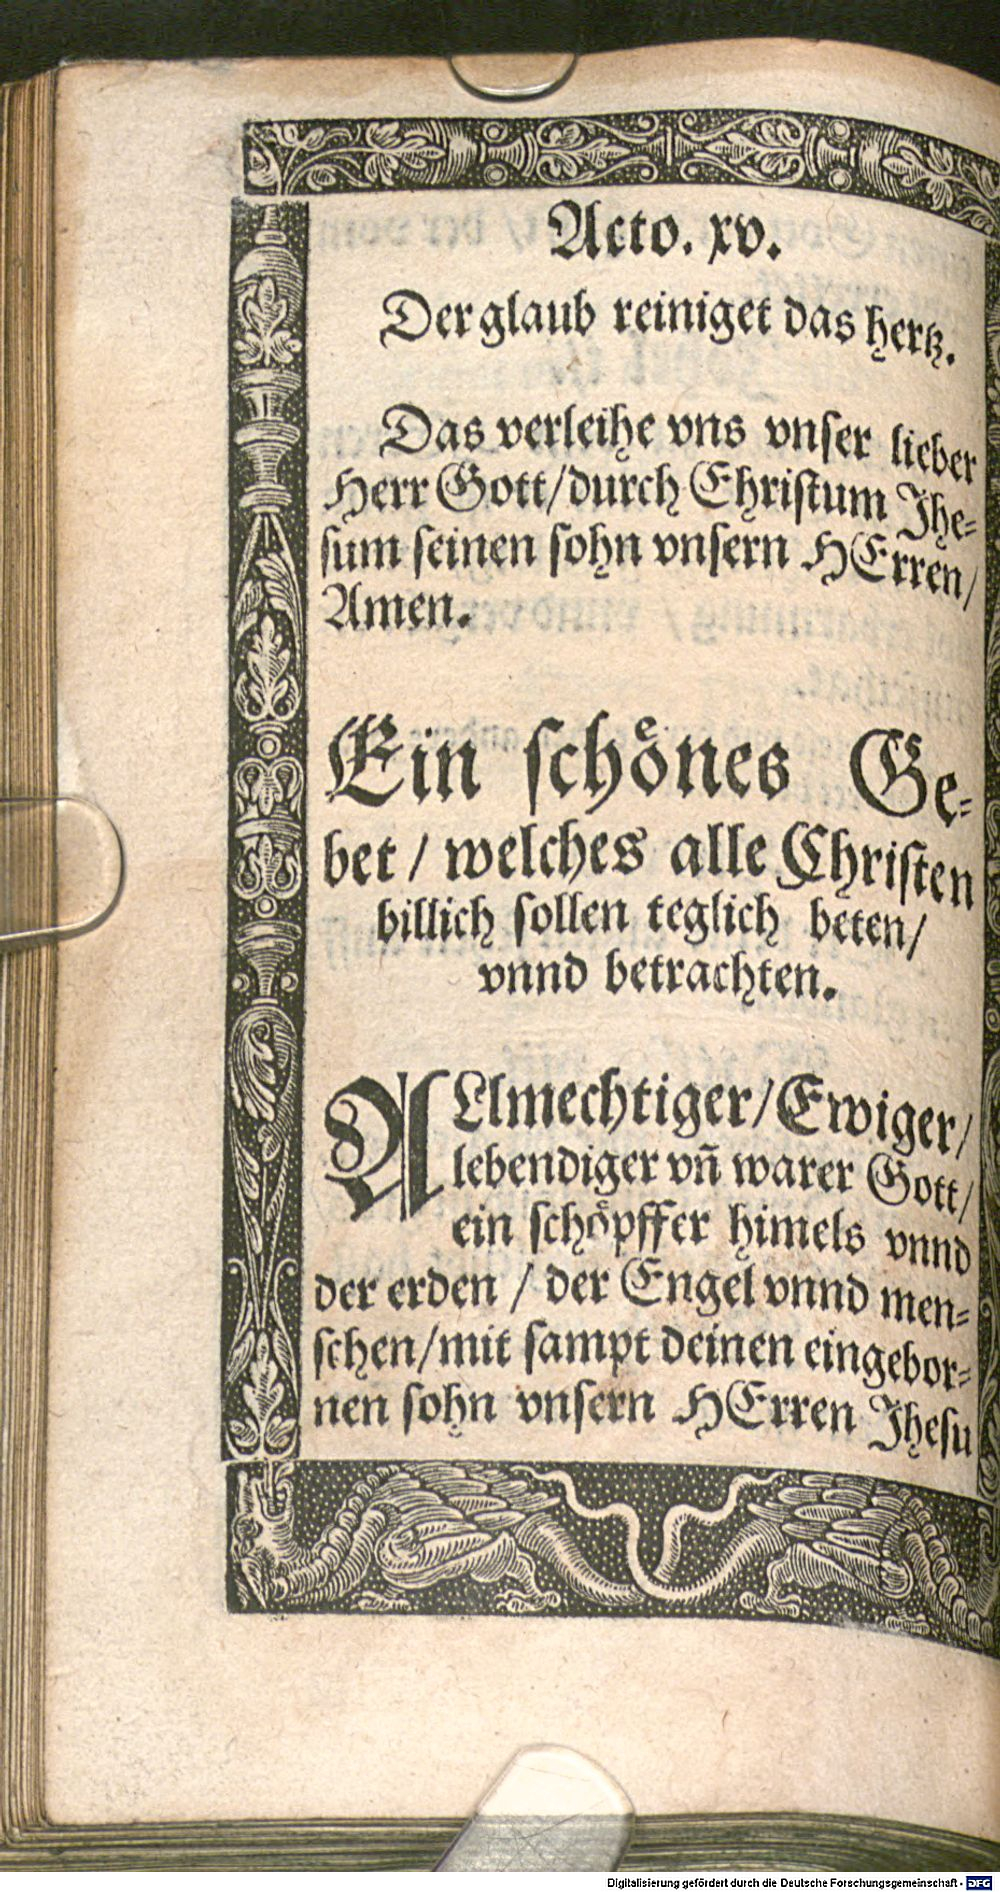 Acto. xv.
Der glaub reiniget das hertz.
Das verleihe vns vnser lieber
Herr Gott/durch Christum Jhe-
sum seinen sohn vnsern HErren/
Amen.
Ein schönes Ge-
bet / welches alle Christen
billich sollen teglich beten/
vnnd betrachten.
ALlmechtiger/Ewiger/
lebendiger vñ warer Gott/
ein schöpffer himels vnnd
der erden / der Engel vnnd men-
schen/mit sampt deinen eingebor-
nen sohn vnsern HErren Jhesu
Digitalisierung gefördert durch die Deutsche Forschungsgemeinschaft - DFG